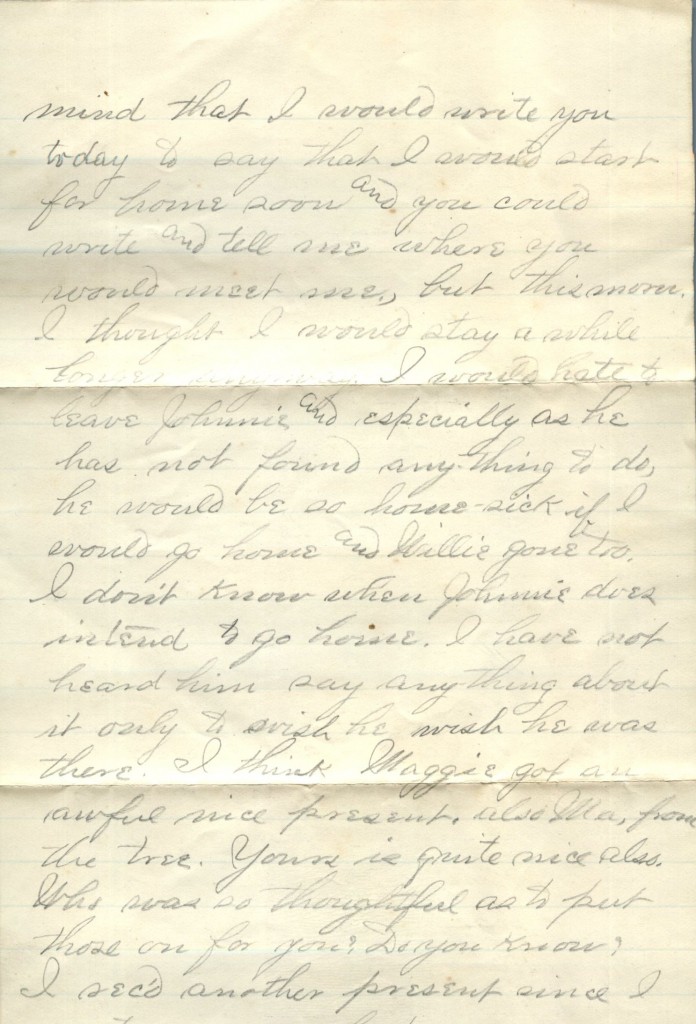 mind that I would write you
today to say that I would start
for home soon and you could
write and tell me where you
would meet me, but this morn.
I thought I would stay a while
longer anyway. I would hate to
leave Johnnie and especially as he
has not found any-thing to do,
he would be so home-sick if I
would go home and Willie gone too.
I don't know when Johnnie does
intend to go home. I have not
heard him say anything about
it only to wish he wish he was
there. I think Maggie got an
awful nice present. also Ma, from
the tree. Yours is quite nice also.
Who was so thoughtful as to put
those on for you? Do you know?
I rec'd another present since I